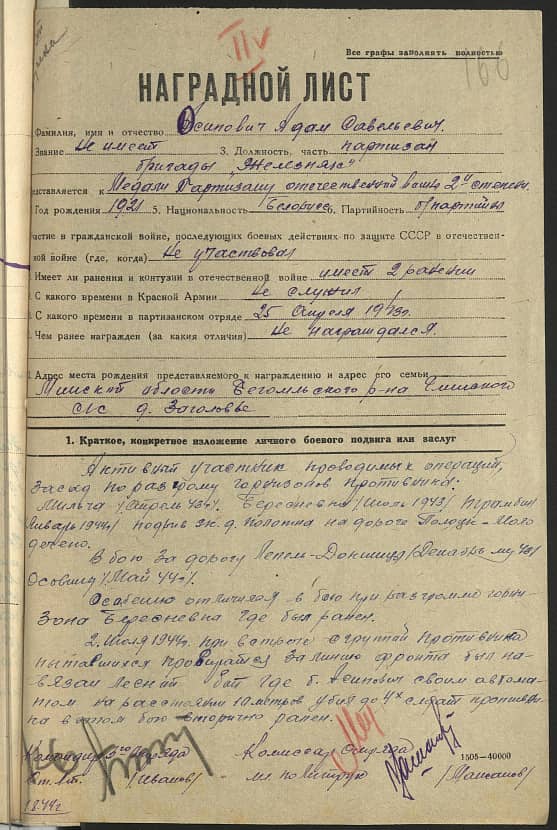 IIv
Все графы заполнять полностью
166
НАГРАДНОЙ ЛИСТ
Фамилия, имя и отчество Осипович Адам Савельевич.
Звание Не имеет 3. Должность, часть партизан
бригады „Железняк"
едставляется к Медали Партизану отечественной войны 2й степени.
Год рождения 1921 5. Национальность Белорусс 6. Партийность б/партийн
частие в гражданской войне, последующих боевых действиях по защите СССР в отечествен-
ной войне (где, когда) Не участвовал
Имеет ли ранения и контузии в отечественной войне имеет 2 ранения
С какого времени в Красной Армии Не служил
С какого времени в партизанском отряде 25 Апреля 1943г.
Чем ранее награжден (за какия отличия) Не награждался.
Адрес места рождения представляемого к награждению и адрес его семьи
Минской области Бегомльского р-на
с/с д. Заголовье
1. Краткое, конкретное изложение личного боевого подвига или заслуг
Активный участник проводимых операций,
засад по разгрому гарнизонов противника.
Мильча /Апрель 43г/. Бересневка /Июль 1943/
Январь 1944г/ подрыв ж.д. полотна на дороге Полоцк - Моло
дечено.
В бою за дорогу Лепель-Докшицы /Декабрь 43/
Осовины /Май 44г/.
Особенно отличился в бою при разгроме гарни-
зона Бересневка где был ранен.
2. Июля 1944г. при встрече с группой противника
пытавшихся пробираться за линию фронта был на-
вязан лесной бой где т. Осипович своим автома-
том на расстоянии 10 метров убил до 4х солдат противни-
ка в этом бою вторично ранен.
Командир отряда Комиссар отряда
1505-40000
ст. лт. /Иванов/ мл. политрук
1944г